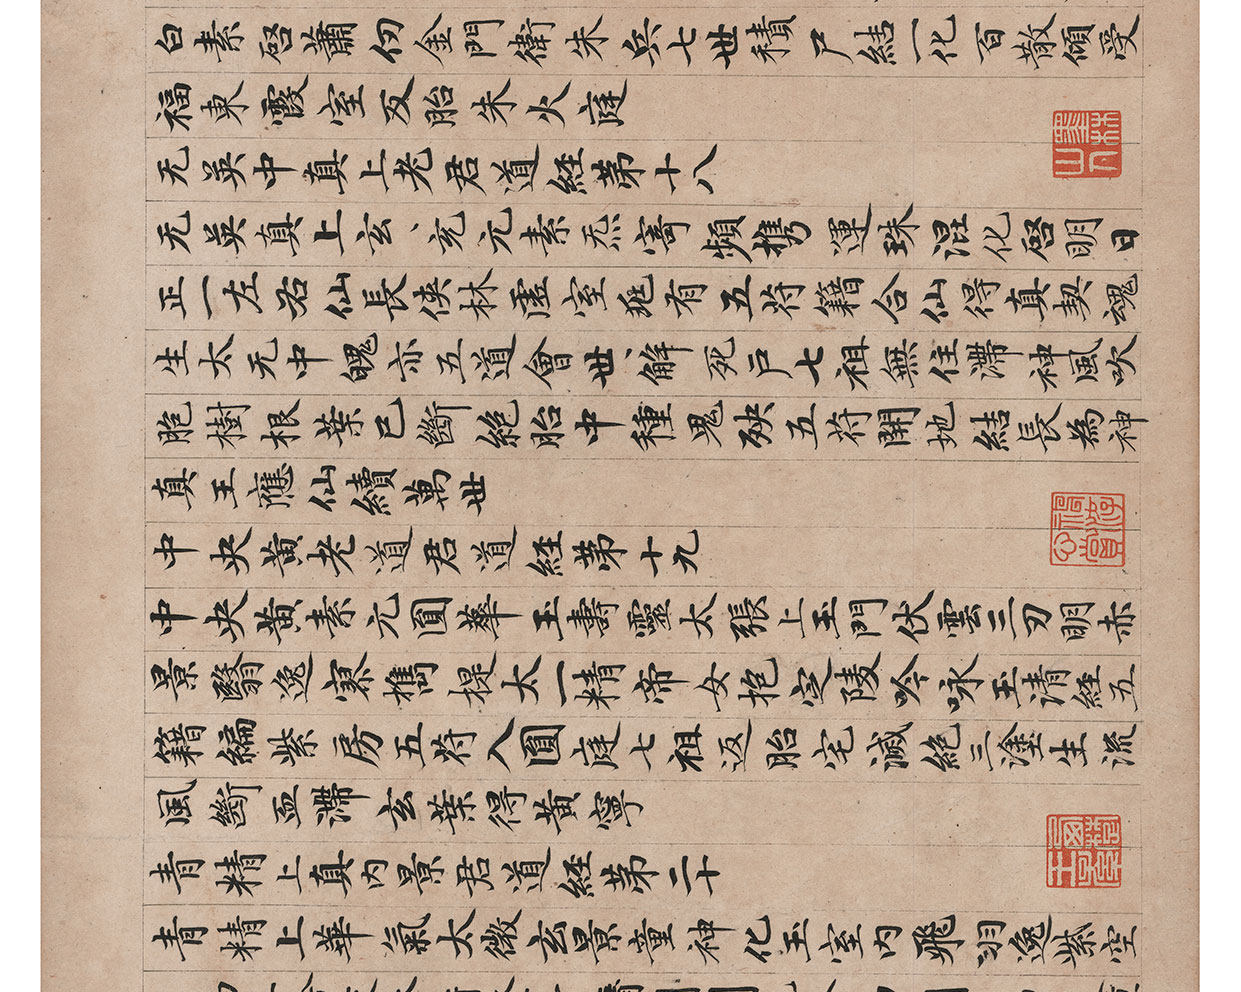 白素啓蕭刃金門衛朱兵七世積尸結一化百散傾受
福東霞室反胎朱火庭
无英中真上老君道經第十八
无英真上玄充元素炁寄頻攜運珠混化啓明日
正一左右仙長俠林虛室有五符籍合仙得真契魂
生太无中魄亦五道會世解死戶七祖無住滯神風吹
胞樹根葉已斷絕胎中種鬼殃五符開地結長為神
真王應仙續萬世
中央黃老道君道經第十九
中央黃素元圓華玉壽靈太張上玉門伏雲三刃明赤
景翳逸寥攜提太一精帝女抱定陵吟咏玉清經五
籍編紫房五符入圓庭七祖返胎宅滅絕三塗生流
風斷盃滯玄葉得黃寧
青精上真內景君道經第二十
青精上華氣太微玄景童神化玉室內飛羽逸紫空
墨林山人